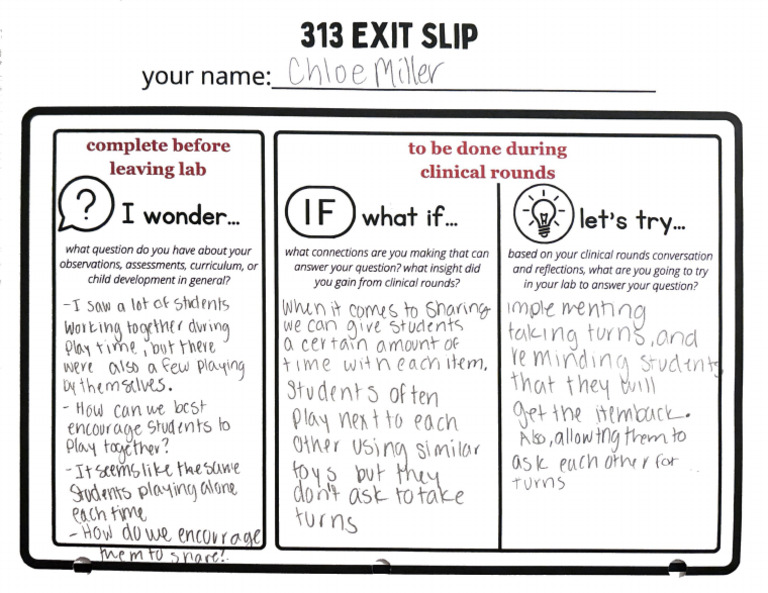 313 EXIT SLIP
your name: Chloe Miller
complete before
leaving lab
? I wonder...
what question do you have about your
observations, assessments, curriculum, or
child development in general?
-I saw a lot of students
working together during
play time, but there
were also a few playing
by themselves.
- How can we best
encourage students to
play together?
-It seems like the same
students playing alone
each time
- How do we encourage
them to share?
to be done during
clinical rounds
IF what if...
what connections are you making that can
answer your question? what insight did
you gain from clinical rounds?
When it comes to sharing
we can give students
a certain amount of
time with each item.
Students often
play next to each
other using similar
toys but they
don't ask to take
turns
let's try...
based on your clinical rounds conversation
and reflections, what are you going to try
in your lab to answer your question?
implementing
taking turns, and
reminding students
that they will
get the item back.
Also, allowing them to
ask each other for
turns